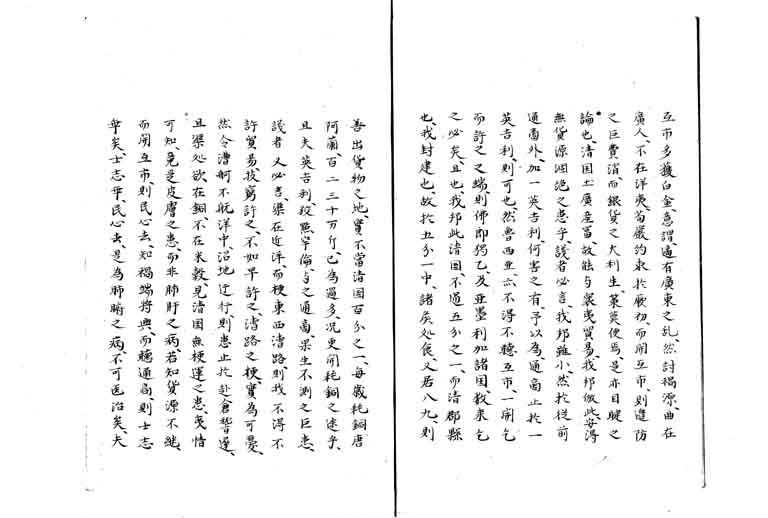 互市多獲白金、急謂、邊有廣東之乱、然討禍源、曲在
廣人、不在洋夷、苟嚴約束於厥初、而開互市、則邊防
之巨費消、而銀貨之大利生、策莫便焉、是亦目睫之
論也、清国土廣産富、故能与裳夷貿易、我邦倣此、安得
無貨源涸渇之患乎、議者必言、我邦雖小、然於従前
通商外、加一英吉利、何害之有、予以為、通商止於一
英吉利、則可也、然魯西亜亦不得不聴互市、一開乞
而許之之端、則佛郎独乙、及亜墨利加諸国、数来乞
之必矣、且也、我邦此清国、不過五分之一、而清郡縣
也、我封建也、故於五分一中、諸矦処食、又居八九、則
善出貨物之地、實不當清国百分之一、毎歳耗銅唐
阿蘭、百二三十万斤、已為過多、况更開耗銅之途乎、
且夫英吉利、狡黠罕倫、与之通商、果生不測之巨患、
議者又必言、渠在近洋、而梗東西漕路、則我不得不
許貿易、抜窮許之、不如早許之、漕路之梗、實為可憂、
然令漕舸不航洋中、沿地辺行、則患止於赴倉皆遅、
且渠処欲在銅、不在米穀、見清国無梗運之患、曳情
可知、兔是皮膚之患、而非肺肝之病、若知貨源不継、
而開互市、則民心去、知禍端将興、而聴通商、則士志
卑矣、士志卑、民心去、是為肺腑之病、不可医治矣、夫